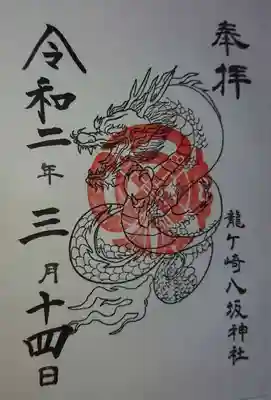 奉拝
龍ヶ崎八坂神社
令和二年三月十四日